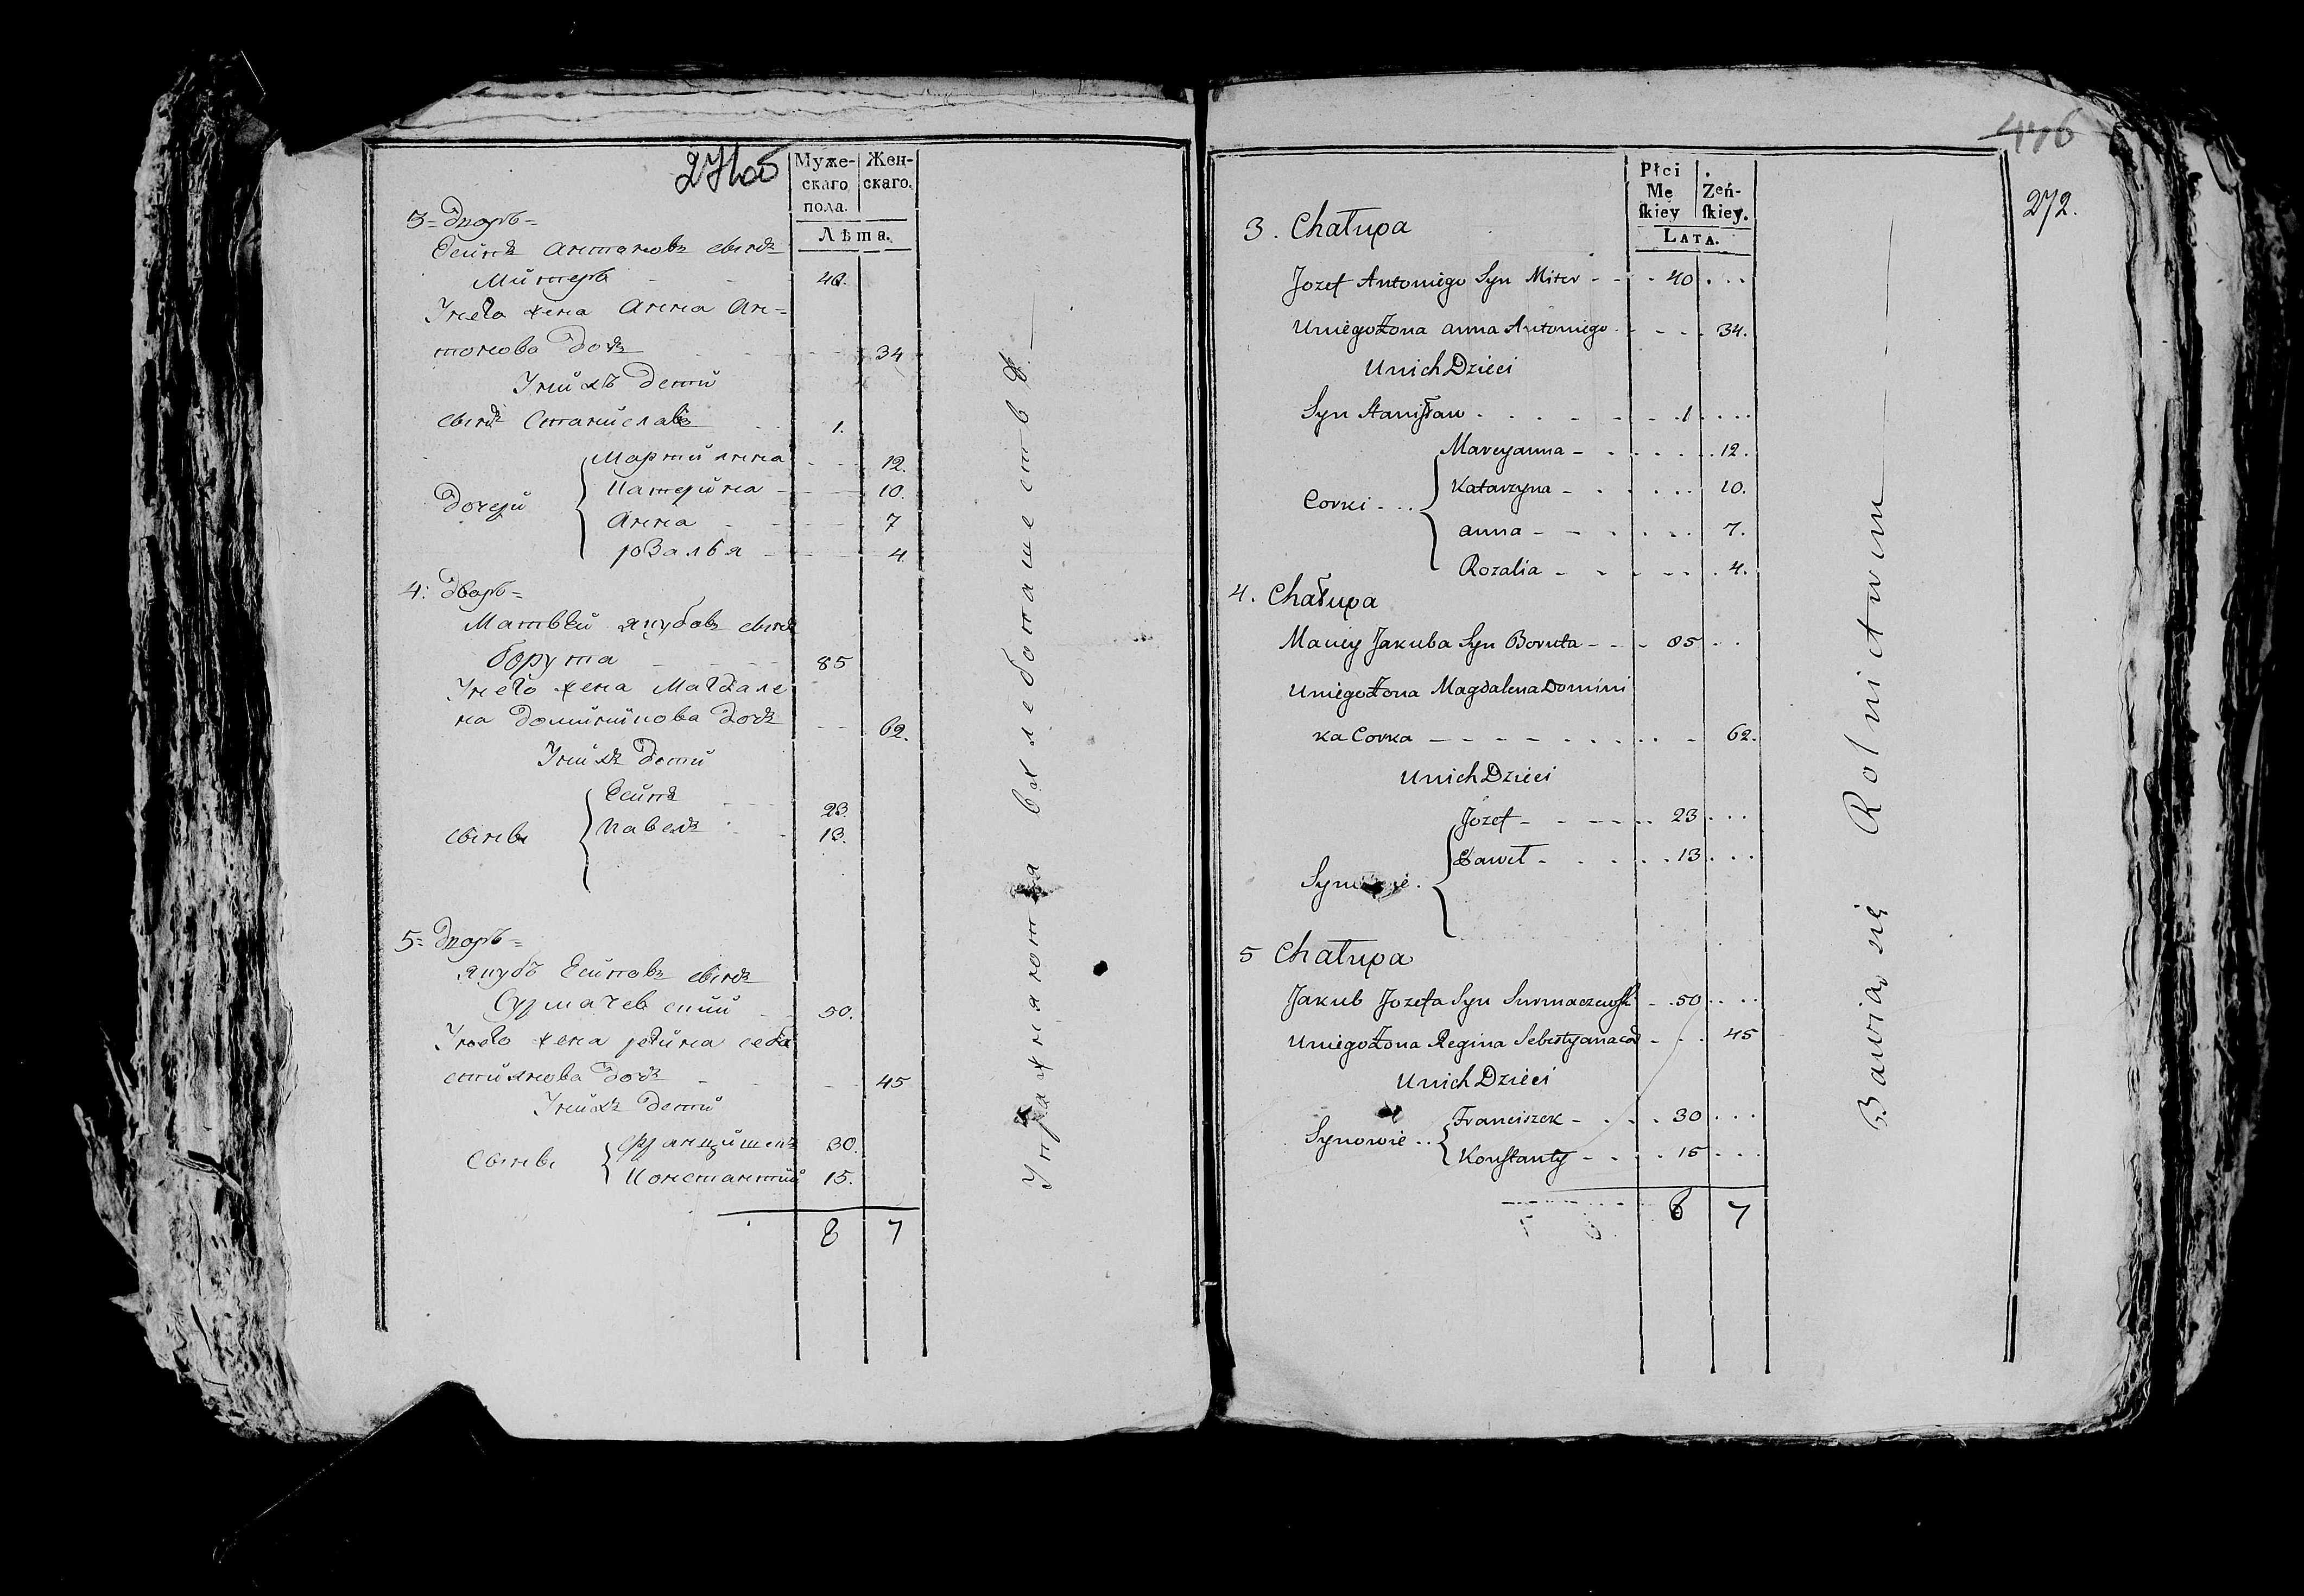 271об
Муже- Жен-
скаго скаго.
пола.
Лѣта.
3= Дворъ=
Осипъ Антоновъ сынъ
Митеръ - - 40.
У него жена Анна Ан=
тонова дочь - - 34
У нихъ дети
сынъ Станиславъ - 1.
Дочери
Мартиянна - - 12.
Катерина - - 10.
Анна - - 7
розалья - - 4
4: Дворъ=
Матвей якубовъ сынъ
борута - - 85
У него жена Магдале
на доминикова дочь - - 62.
У нихъ дети
сыны
Осипъ - - 23.
Павелъ - - 13.
5= Дворъ=
якубъ Есиповъ сынъ
Сурмачевский - - 50.
У него жена регина себа
стиянова дочь - - 45
У нихъ дети
сыны
францишекъ 30.
Константий 15.
8 7
Упражняются в хлебопашестве. —
476
272.
Płci
Mę Żeń-
ſkiey ſkiey.
LATA.
3. Chałupa
Jozef Antoniego Syn Miter - - - 40 . . .
Uniego Żona anna Antoniego - - - . 34.
Unich Dzieci
Syn Staniſław . . . - - - . 1 . . . .
Corki - . .
Mareyanna - . . . . . . 12.
Katarzyna - . . . . . 10.
anna - - - . . . . 7.
Rozalia - - - - - - . 4.
4. Chałupa
Maciey Jakuba Syn Boruta - - - 85 . .
Uniego Żona Magdalena Domini
ka Corka - - - - - - . . . . - 62.
Unich Dzieci
Synowie.
Jozef - - - - - . . 23 . . .
Paweł - . . . . . 13 . . .
5 Chałupa
Jakub Jozefa Syn Surmaczewſki - . 50 . . . .
Uniego Żona Regina Sebestyana Co - . . . 45
Unich Dzieci
Synowie . .
Franciszek - . . . . 30 . . .
Konſtanty - - . . . 15 . . .
8 7
Bawią się Rolnictwem